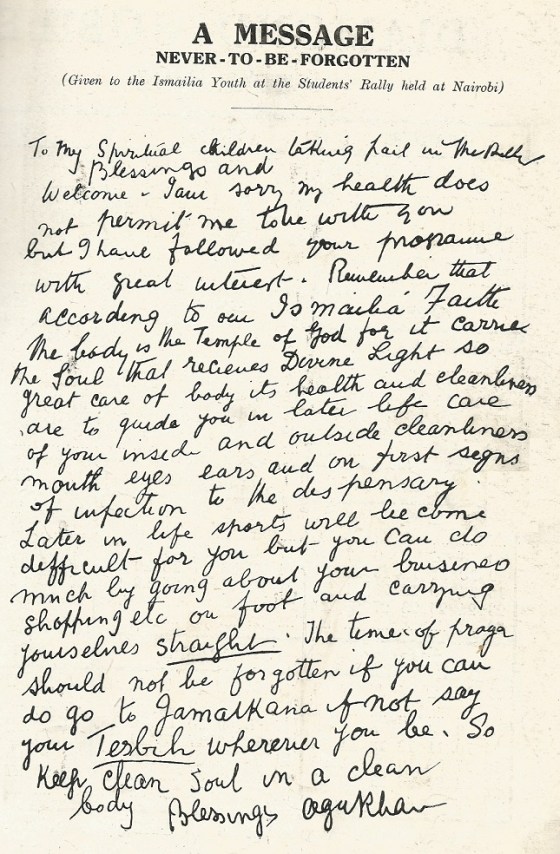 A MESSAGE
NEVER-TO-BE-FORGOTTEN
(Given to the Ismailia Youth at the Students' Rally held at Nairobi)
To My Spiritual children taking part in the Rally
Blessings and
Welcome - I am sorry my health does
not permit me to be with you
but I have followed your programme
with great interest. Remember that
according to our Ismailia Faith
the body is the Temple of God for it carries
the Soul that recieves Divine Light so
great care of body its health and cleanliness
are to guide you in later life care
of your inside and outside cleanliness
mouth eyes ears and on first signs
of infection to the dispensary.
Later in life sports will become
difficult for you but you can do
much by going about your business
shopping etc on foot and carrying
yourselves straight. The times of prayer
should not be forgotten if you can
do go to Jamatkana if not say
your Tesbih wherever you be. So
Keep clean Soul in a clean
body Blessings Aga Khan